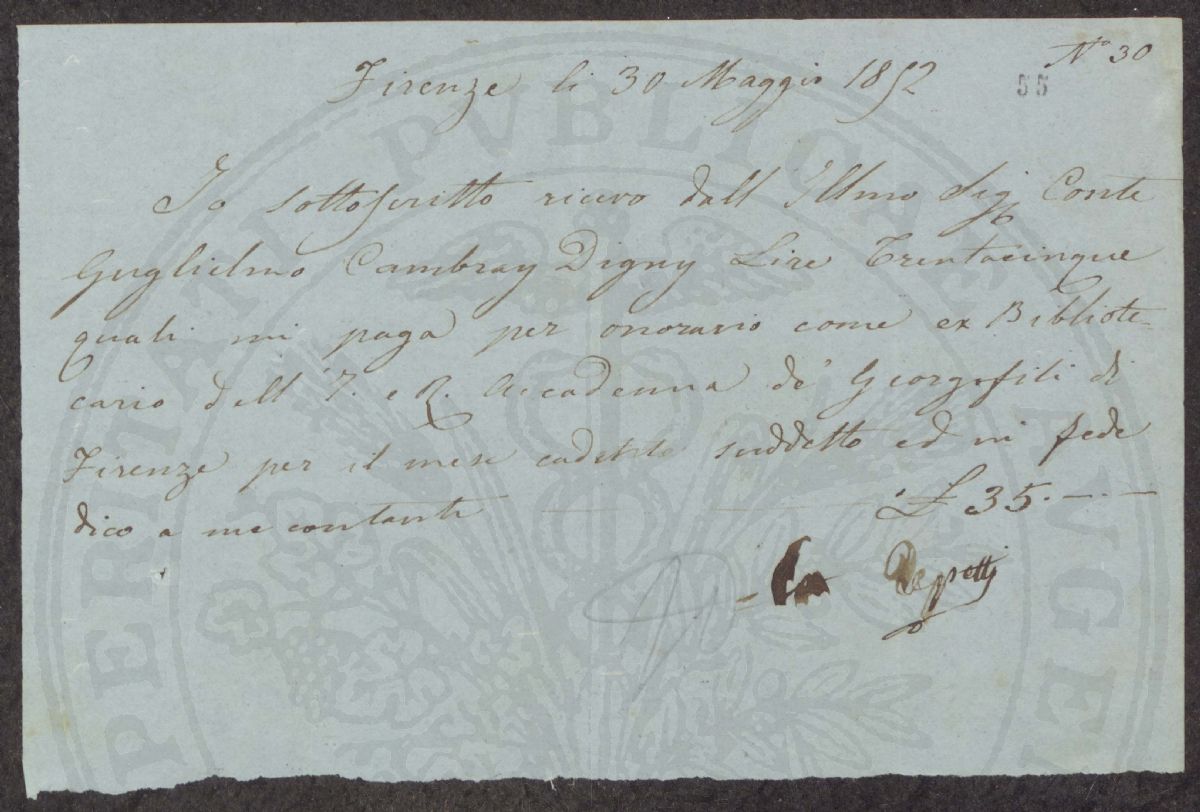 N° 30
55
Firenze li 30 Maggio 1852
Io sottoscritto ricevo dall Illmo Sig Conte
Guglielmo Cambray Digny Lire Trentacinque
quali mi paga per onorario come ex Bibliote-
cario dell' I. e R. Accademia de' Georgofili di
Firenze per il mese cadente suddetto ed in fede
dico a me contanti £ 35.—.—
Repetti
PROSPERITATI PVBLICAE AVGE